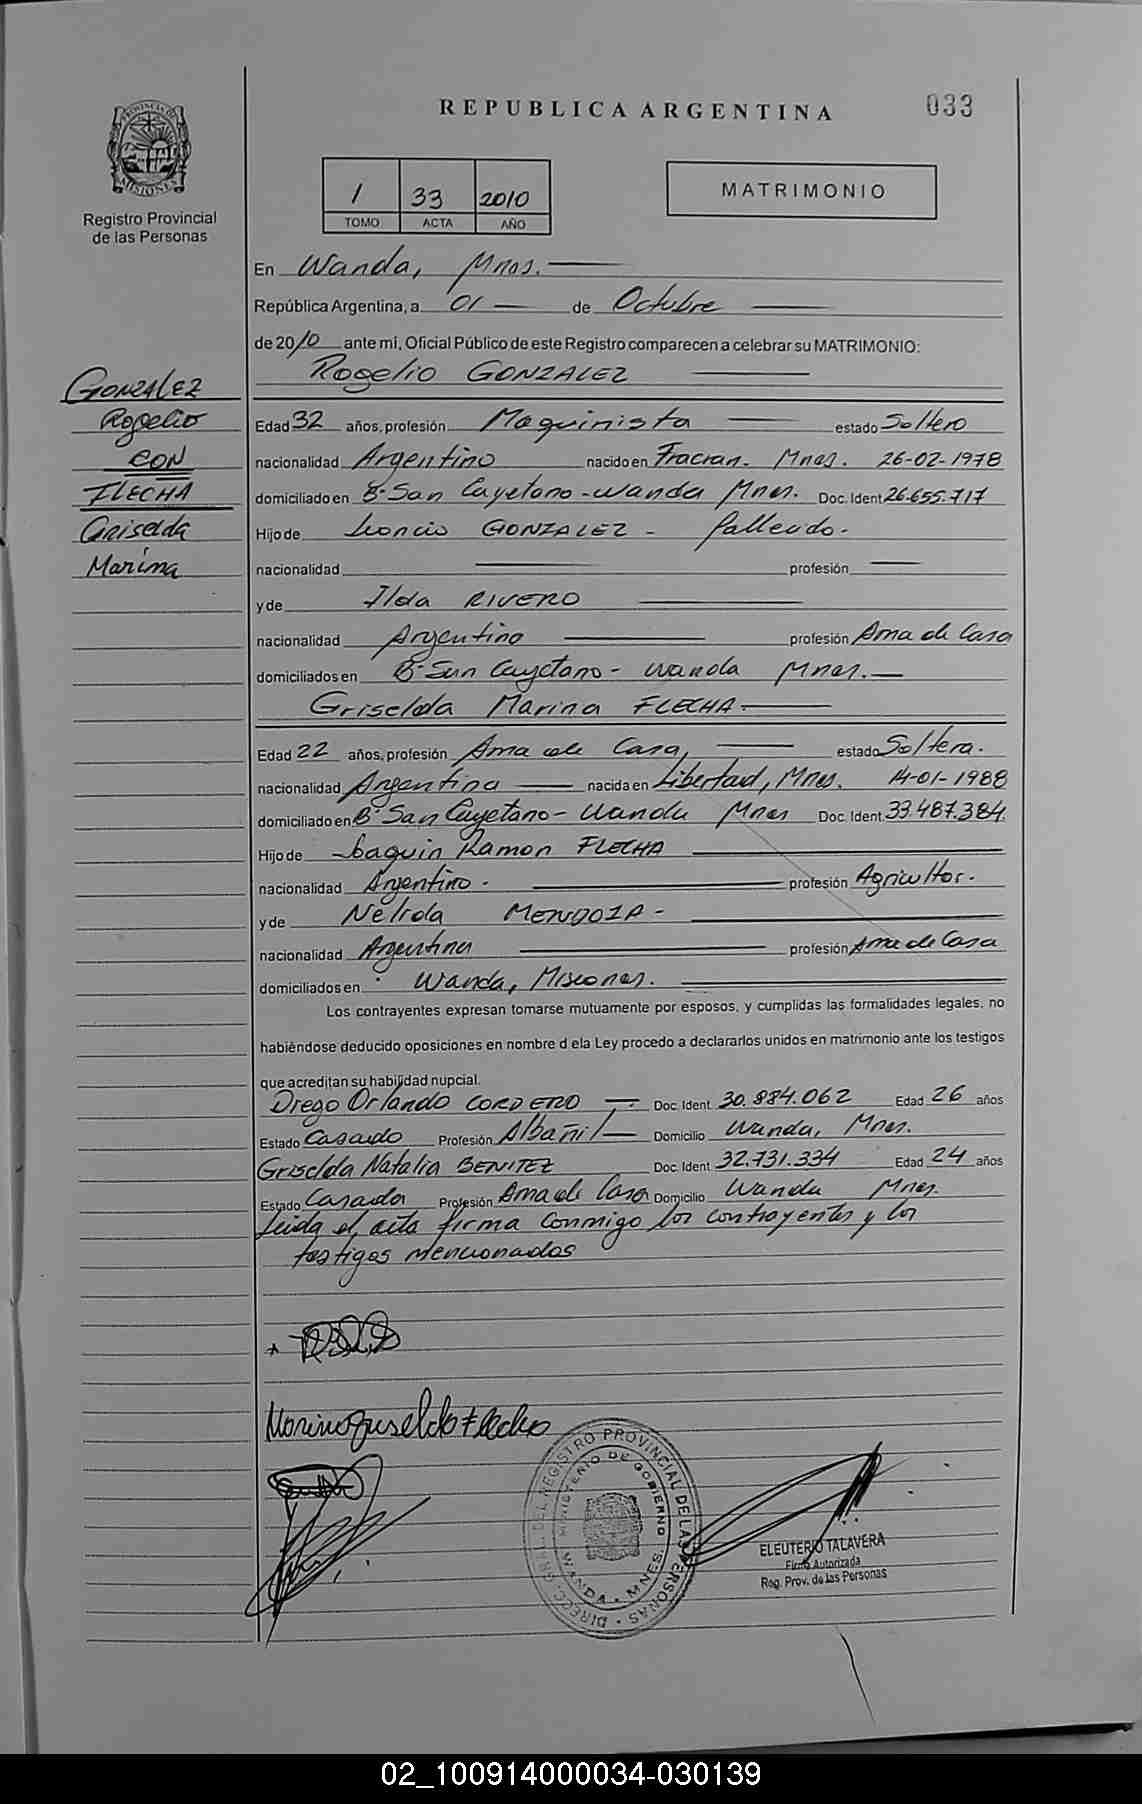 REPUBLICA ARGENTINA
033
PROVINCIA DE MISIONES
Registro Provincial
de las Personas
1 33 2010
TOMO ACTA AÑO
MATRIMONIO
GONZALEZ
Rogelio
CON
FLECHA
Griselda
Marina
En Wanda, Mnes.
República Argentina, a 01 de Octubre
de 2010 ante mi, Oficial Público de este Registro comparecen a celebrar su MATRIMONIO:
Rogelio GONZALEZ
Edad 32 años, profesión Maquinista estado Soltero
nacionalidad Argentino nacido en Fracran. Mnes. 26-02-1978
domiciliado en B° San Cayetano - Wanda Mnes. Doc. Ident 26.655.717
Hijo de Leoncio GONZALEZ - fallecido.
nacionalidad profesión
y de Ilda RIVERO
nacionalidad Argentina profesión Ama de Casa
domiciliados en B° San Cayetano - Wanda Mnes.
Griselda Marina FLECHA.
Edad 22 años, profesión Ama de Casa, estado Soltera.
nacionalidad Argentina nacida en Libertad, Mnes. 14-01-1988
domiciliado en B° San Cayetano - Wanda Mnes Doc. Ident. 33.487.384.
Hijo de Joaquin Ramon FLECHA
nacionalidad Argentino. profesión Agricultor.
y de Nelida MENDOZA -
nacionalidad Argentina profesión Ama de Casa
domiciliados en Wanda, Misiones.
Los contrayentes expresan tomarse mutuamente por esposos, y cumplidas las formalidades legales, no
habiéndose deducido oposiciones en nombre d ela Ley procedo a declararlos unidos en matrimonio ante los testigos
que acreditan su habilidad nupcial.
Diego Orlando CORDERO Doc. Ident. 30.884.062 Edad 26 años
Estado Casado Profesión Albañil Domicilio Wanda, Mnes.
Griselda Natalia BENITEZ Doc. Ident. 32.731.334 Edad 24 años
Estado Casada Profesión Ama de Casa Domicilio Wanda Mnes.
Leida el acta firma conmigo los contrayentes y los
testigos mencionados
DIREC. GRAL. DEL REGISTRO PROVINCIAL DE LAS PERSONAS
MINISTERIO DE GOBIERNO
WANDA - MNES.
ELEUTERIO TALAVERA
Firma Autorizada
Reg. Prov. de las Personas
02_100914000034-030139